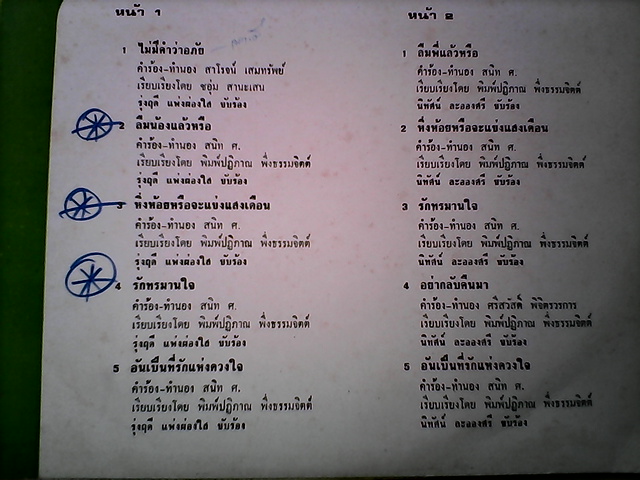 หน้า 1
1 ไม่มีคำว่าอภัย
คำร้อง-ทำนอง สาโรจน์ เสมทรัพย์
เรียบเรียงโดย ชอุ่ม สานะเสน
รุ่งฤดี แพ่งผ่องใส ขับร้อง
2 ลืมน้องแล้วหรือ
คำร้อง-ทำนอง สนิท ศ.
เรียบเรียงโดย พิมพ์ปฏิภาณ พึ่งธรรมจิตต์
รุ่งฤดี แพ่งผ่องใส ขับร้อง
3 หิ่งห้อยหรือจะแข่งแสงเดือน
คำร้อง-ทำนอง สนิท ศ.
เรียบเรียงโดย พิมพ์ปฏิภาณ พึ่งธรรมจิตต์
รุ่งฤดี แพ่งผ่องใส ขับร้อง
4 รักทรมานใจ
คำร้อง-ทำนอง สนิท ศ.
เรียบเรียงโดย พิมพ์ปฏิภาณ พึ่งธรรมจิตต์
รุ่งฤดี แพ่งผ่องใส ขับร้อง
5 อันเป็นที่รักแห่งดวงใจ
คำร้อง-ทำนอง สนิท ศ.
เรียบเรียงโดย พิมพ์ปฏิภาณ พึ่งธรรมจิตต์
รุ่งฤดี แพ่งผ่องใส ขับร้อง
หน้า 2
1 ลืมพี่แล้วหรือ
คำร้อง-ทำนอง สนิท ศ.
เรียบเรียงโดย พิมพ์ปฏิภาณ พึ่งธรรมจิตต์
นิทัศน์ ละอองศรี ขับร้อง
2 หิ่งห้อยหรือจะแข่งแสงเดือน
คำร้อง-ทำนอง สนิท ศ.
เรียบเรียงโดย พิมพ์ปฏิภาณ พึ่งธรรมจิตต์
นิทัศน์ ละอองศรี ขับร้อง
3 รักทรมานใจ
คำร้อง-ทำนอง สนิท ศ.
เรียบเรียงโดย พิมพ์ปฏิภาณ พึ่งธรรมจิตต์
นิทัศน์ ละอองศรี ขับร้อง
4 อย่ากลับคืนมา
คำร้อง-ทำนอง ศรีสวัสดิ์ พิจิตรวรการ
เรียบเรียงโดย พิมพ์ปฏิภาณ พึ่งธรรมจิตต์
นิทัศน์ ละอองศรี ขับร้อง
5 อันเป็นที่รักแห่งดวงใจ
คำร้อง-ทำนอง สนิท ศ.
เรียบเรียงโดย พิมพ์ปฏิภาณ พึ่งธรรมจิตต์
นิทัศน์ ละอองศรี ขับร้อง